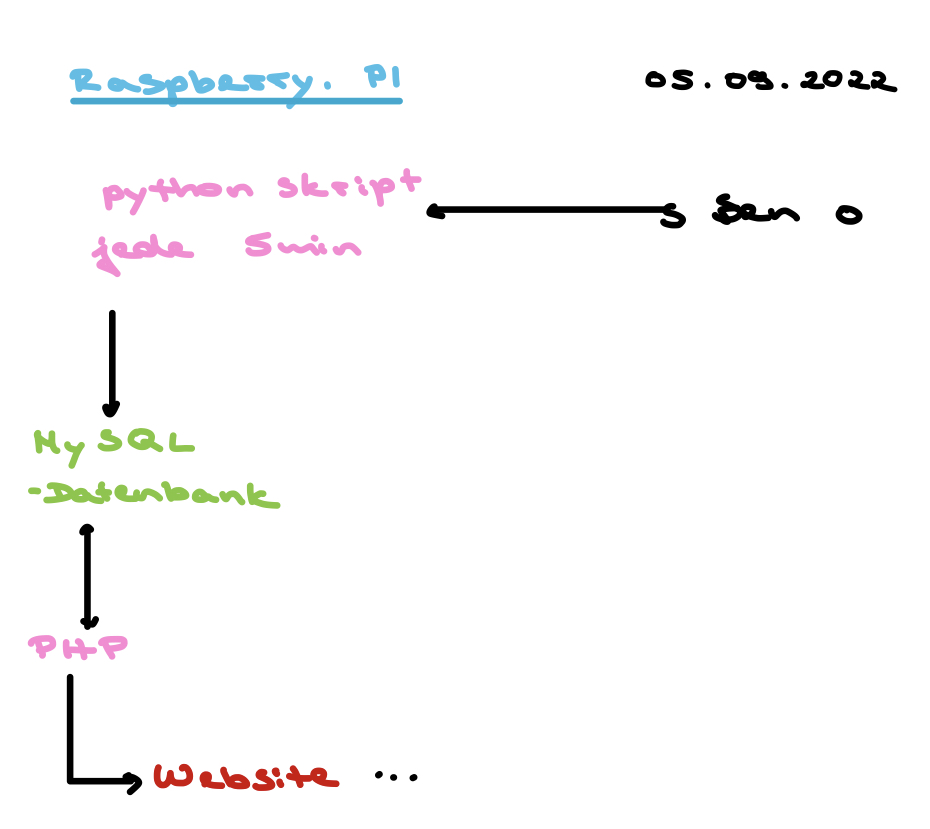 Raspberry. PI
05.09.2022
python skript
jede 5min
MySQL
-Datenbank
PHP
Website ...